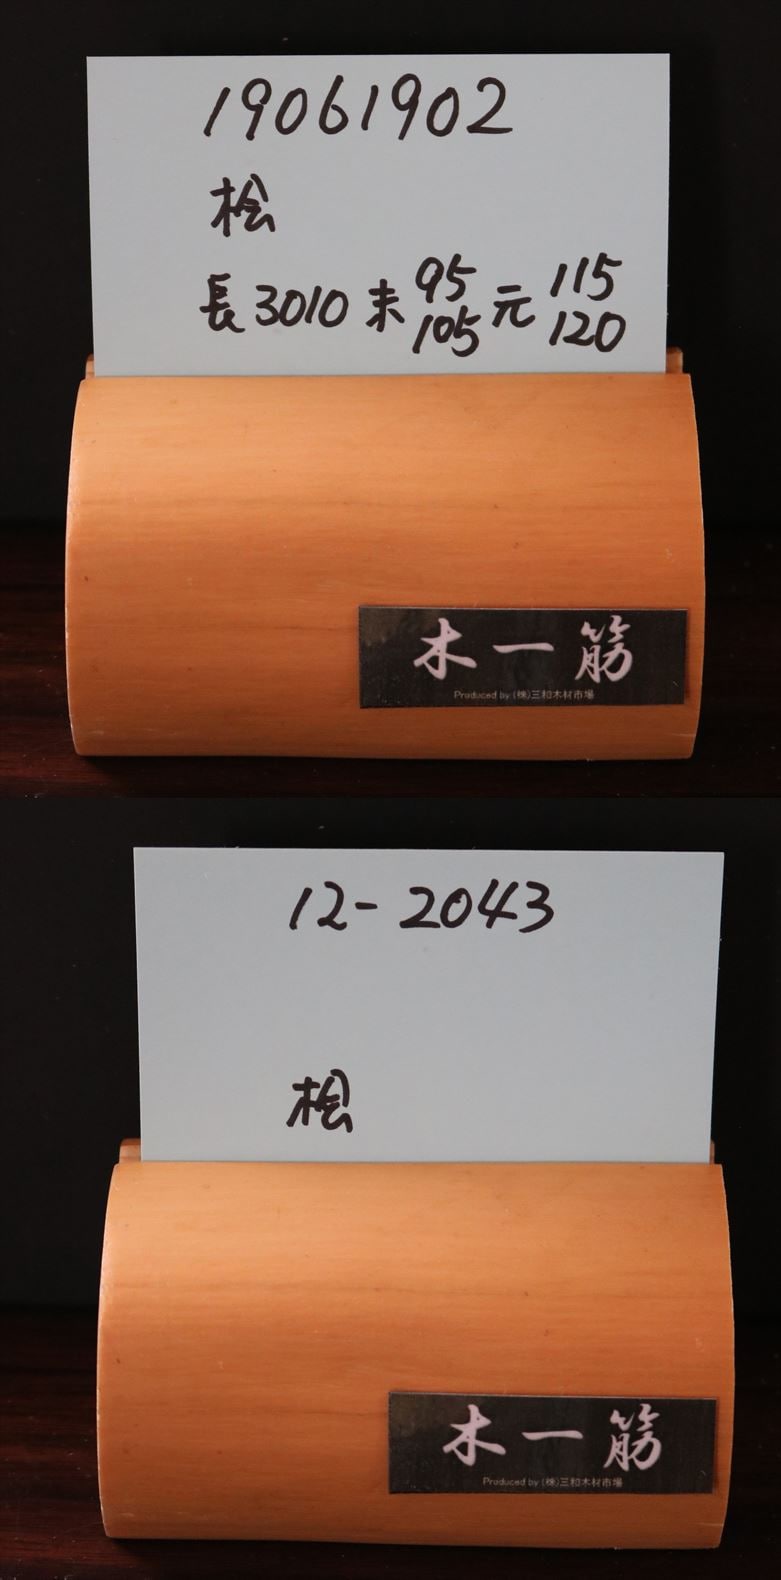 19061902
桧
長3010 末 95 105 元 115 120
木一筋
Produced by (株)三和木材市場
12-2043
桧
木一筋
Produced by (株)三和木材市場